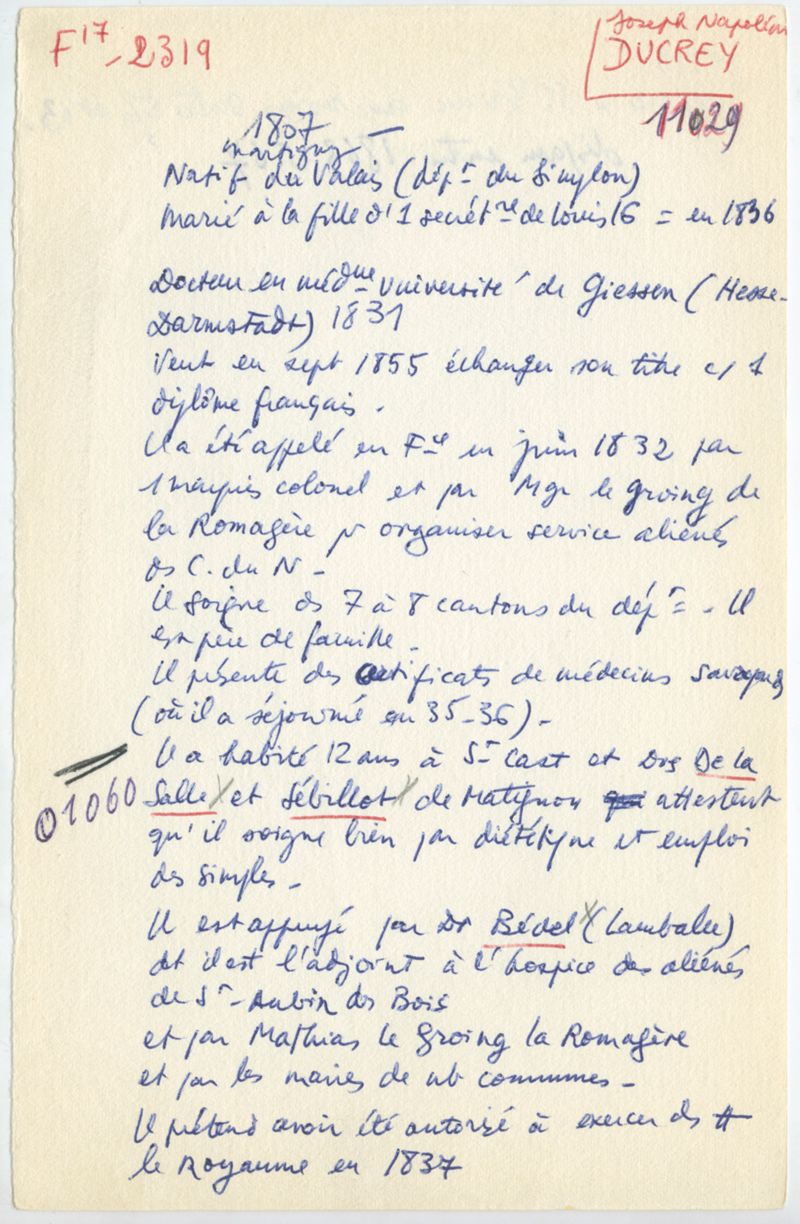 F17 - 2319
Joseph Napoléon
DUCREY
11029
1807
Martigny -
Natif du Valais (dépt du Simplon)
Marié à la fille d'1 secrétre de Louis 16 = en 1836
Docteur en médne Université de Giessen (Hesse-
Darmstadt) 1831
Veut en sept 1855 échanger son titre c/ 1
diplôme français.
Il a été appelé en Fce en juin 1832 par
1 marquis colonel et par Mgr le Groing de
la Romagère pr organiser service aliénés
ds C. du N -
Il soigne ds 7 à 8 cantons du dépt - Il
est père de famille.
Il présente des certificats de médecins
(où il a séjourné en 35-36) -
Il a habité 12 ans à St Cast et Drs De la
01060 Salle et Sébillot de Matignon attestent
qu'il soigne bien par diététique et emploi
des simples -
Il est appuyé par Dr Bédel (Lamballe)
dt il est l'adjoint à l'hospice des aliénés
de St-Aubin des Bois
et par Mathias le Groing la Romagère
et par les maires de nb communes -
Il prétend avoir été autorisé à exercer ds tt
le Royaume en 1837